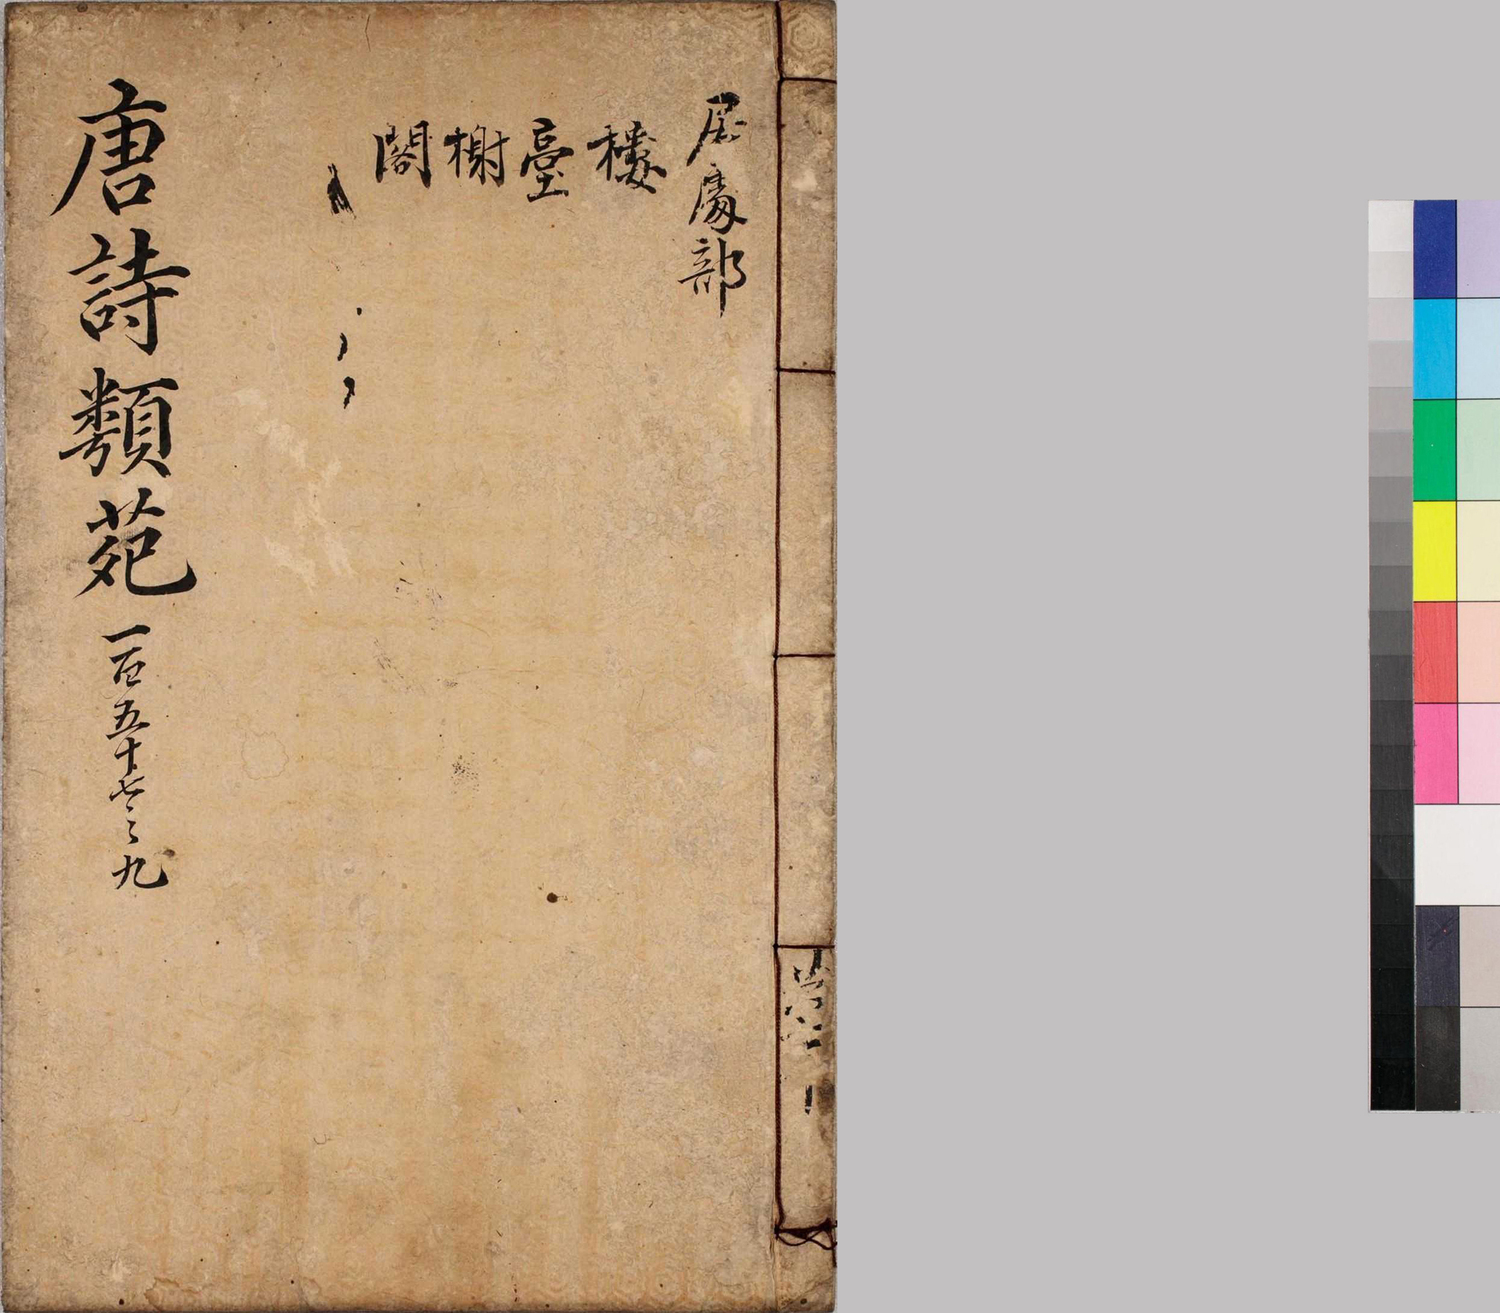 居處部
樓
臺
榭
閣
唐詩類苑 一百五十七之九